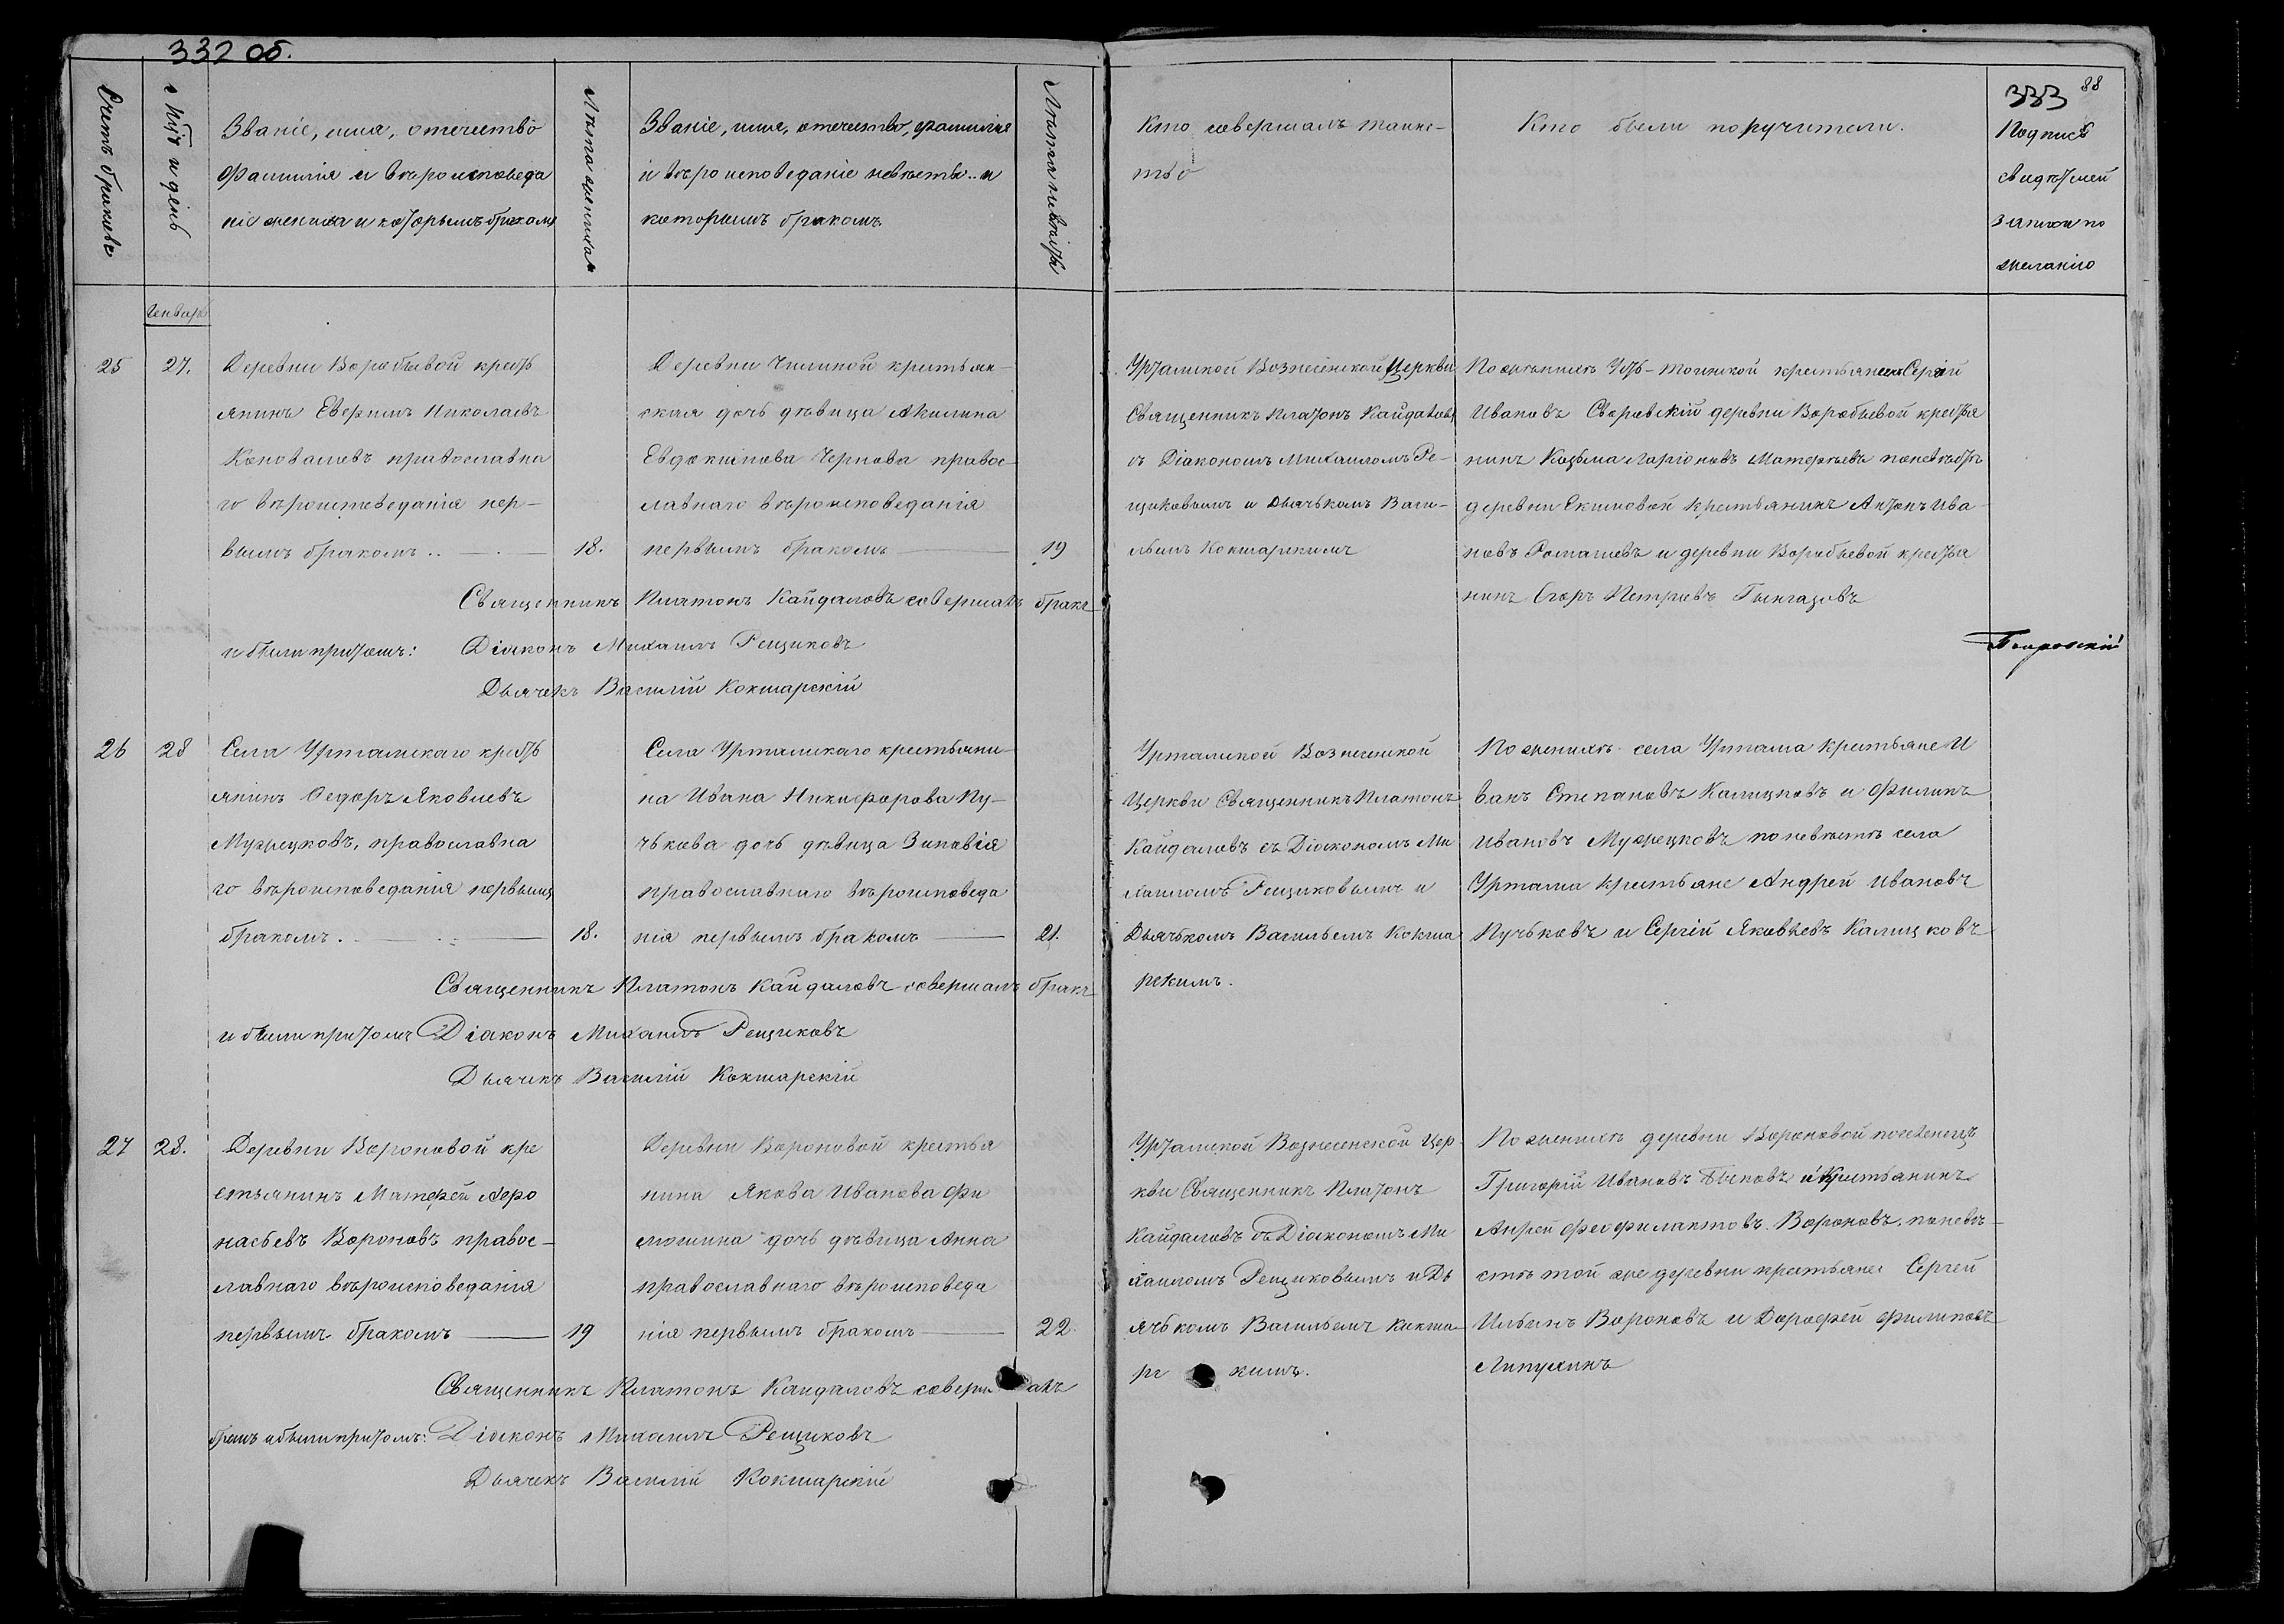 332 об.
Счетъ браковъ
Мцъ и день
Званіе, имя, отечество
фамилія и вѣроисповеда
ніе жениха и которымъ бракомъ
Лѣта жениха
Званіе, имя, отечество, фамилія
и вѣроисповеданіе невѣсты и
которымъ бракомъ
Лѣта невѣсты
Генварь
25
27.
Деревни Воробьевой крест
янинъ Николаевъ
Коноваловъ православна
го вѣроисповеданія пер-
вымъ бракомъ
18.
Деревни Чилиной крестьян-
ская дочь дѣвица Акилина
Евдокимова Чернова правос-
лавнаго вѣроисповеданія
первымъ бракомъ
19
Священникъ Платонъ Кайдаловъ совершалъ бракъ
и были притомъ: Діаконъ Михаилъ Рещиковъ
Дьячекъ Василій Кокшарскій
26
28
Села Уртамскаго крест
янинъ Ѳедоръ Яковлевъ
православна
го вѣроисповеданія первымъ
бракомъ.
18.
Села Уртамскаго крестьяни-
на Ивана Никифорова Пу-
чькова дочь дѣвица Зиновія
православнаго вѣроисповеда
нія первымъ бракомъ
21.
Священникъ Платонъ Кайдаловъ совершалъ бракъ
и были притомъ Діаконъ Михаилъ Рещиковъ
Дьячекъ Василій Кокшарскій
27
28.
Деревни Вороновой кре
стьянинъ Матфей Афо
насьевъ Вороновъ правос-
лавнаго вѣроисповеданія
первымъ бракомъ
19
Деревни Вороновой крестья
нина Якова Иванова Фи
люшина дочь дѣвица Анна
православнаго вѣроисповеда
нія первымъ бракомъ
22.
Священникъ Платонъ Кайдаловъ соверш алъ
бракъ и были притомъ: Діаконъ Михаилъ Рещиковъ
Дьячекъ Василій Кокшарскій
333
88
Кто совершалъ таинс-
тво
Кто были поручители.
Подписъ
свидѣтелей
записи по
желанію
Уртамской Вознесенской Церкви
Священникъ Платонъ Кайдаловъ
съ Діакономъ Михаиломъ Ре-
щиковымъ и Дьячькомъ Васи-
льемъ Кокшарскимъ
По женихѣ крестьянинъ Сергій
Ивановъ деревни Воробьевой крестья
нинъ Козьма Ларіоновъ Матфѣевъ по невѣстѣ
деревни Екимовой крестьянинъ Антонъ Ива-
новъ Ромашевъ и деревни Воробьевой крестья
нинъ Егоръ Петровъ Тынгазовъ
Уртамской Вознесенской
Церкви Священникъ Платонъ
Кайдаловъ съ Діакономъ Ми
хаиломъ Рещиковымъ и
Дьячькомъ Васильемъ Кокша
рскимъ.
По женихѣ села Уртама крестьяне И
ванъ Степановъ Калицковъ и Филипъ
Ивановъ по невѣстѣ села
Уртама крестьяне Андрей Ивановъ
Пучьковъ и Сергій Яковлевъ Калицковъ
Уртамской Вознесенской Цер-
кви Священникъ Платонъ
Кайдаловъ съ Діакономъ Ми
хаиломъ Рещиковымъ и Дь
ячькомъ Васильемъ Кокша
рс кимъ.
По женихѣ деревни Вороновой поселенецъ
Григорій Ивановъ Быковъ и крестьянинъ
Анрей Феофилактовъ Вороновъ, по невѣ-
стѣ той же деревни крестьяне Сергей
Ильинъ Вороновъ и Дорофей Филиповъ
Липухинъ